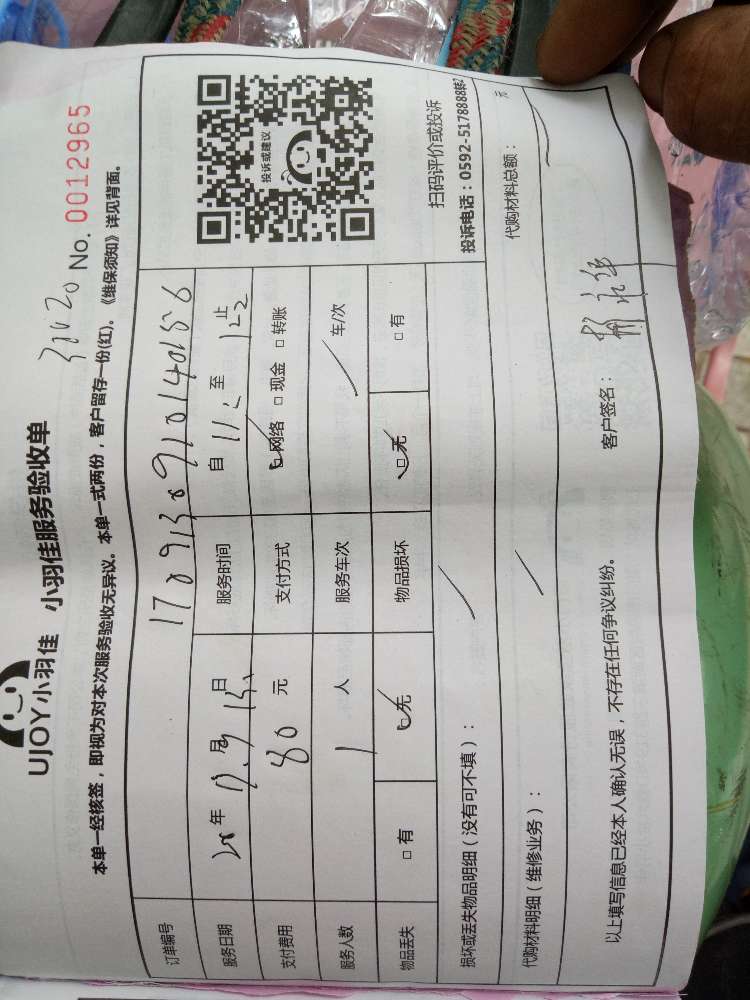 UJOY小羽佳 小羽佳服务验收单
No. 0012965
本单一经核签，即视为对本次服务验收无异议。本单一式两份，客户留存一份(红)，《维保须知》详见背面。
订单编号
服务日期 年 月 日 服务时间 自 11 至 止
支付费用 80 元 支付方式 ☑网络 □现金 □转账
服务人数 1 人 服务车次 / 车/次
物品丢失 □有 ☑无 物品损坏 ☑无 □有
投诉或建议
扫码评价或投诉
投诉电话：0592-5178888转2
损坏或丢失物品明细（没有可不填）： /
代购材料明细（维修业务）： / 代购材料总额： 元
以上填写信息已经本人确认无误，不存在任何争议纠纷。 客户签名：